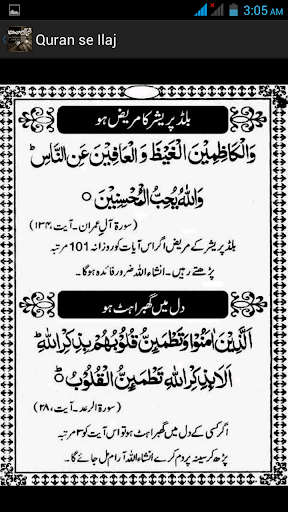 3:05 AM
Quran se Ilaj
بلڈ پریشر کا مریض ہو
وَالْكَاظِمِيْنَ الْغَيْظَ وَالْعَافِيْنَ عَنِ النَّاسِ ط
وَاللّٰهُ يُحِبُّ الْمُحْسِنِيْنَ ○
(سورۃ آل عمران۔آیت،۱۳۴)
بلڈ پریشر کے مریض اگر اس آیات کو روزانہ 101 مرتبہ
پڑھتے رہیں۔ انشاء اللہ ضرور فائدہ ہوگا۔
دل میں گھبراہٹ ہو
اَلَّذِيْنَ اٰمَنُوْا وَتَطْمَئِنُّ قُلُوْبُهُمْ بِذِكْرِ اللّٰهِ ط
اَلَا بِذِكْرِ اللّٰهِ تَطْمَئِنُّ الْقُلُوْبُ ط ○
(سورۃ الرعد۔آیت،۲۸)
اگر کسی کے دل میں گھبراہٹ ہو تو اس آیت کو ۳ مرتبہ
پڑھ کر سینہ پر دم کرے انشاء اللہ آرام مل جائے گا۔